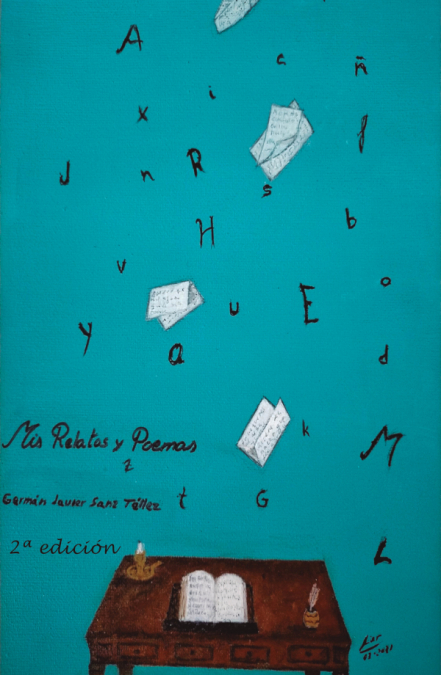 A
c
ñ
i
x
f
J
n
R
s
b
H
v
o
u
E
y
a
d
k
Mis Relatos y Poemas
M
z
Germán Javier Sanz Téllez
t
G
2ª edición
L